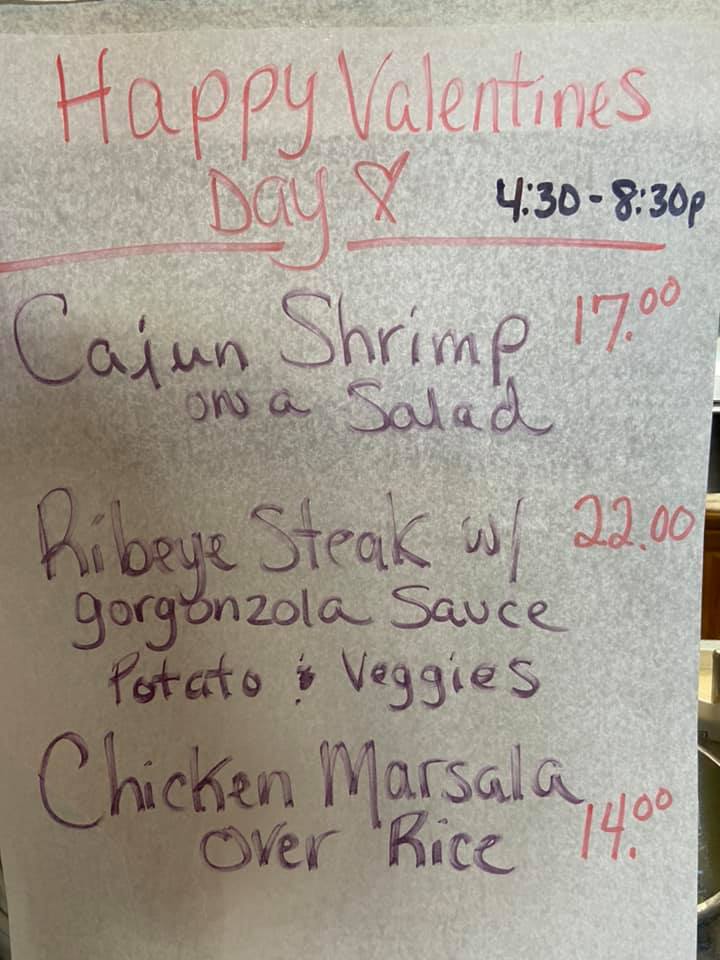 Happy Valentines
Day ♡
4:30-8:30p
Cajun Shrimp 17.00
on a Salad
Ribeye Steak w/ 22.00
gorgonzola Sauce
Potato & Veggies
Chicken Marsala
Over Rice 14.00